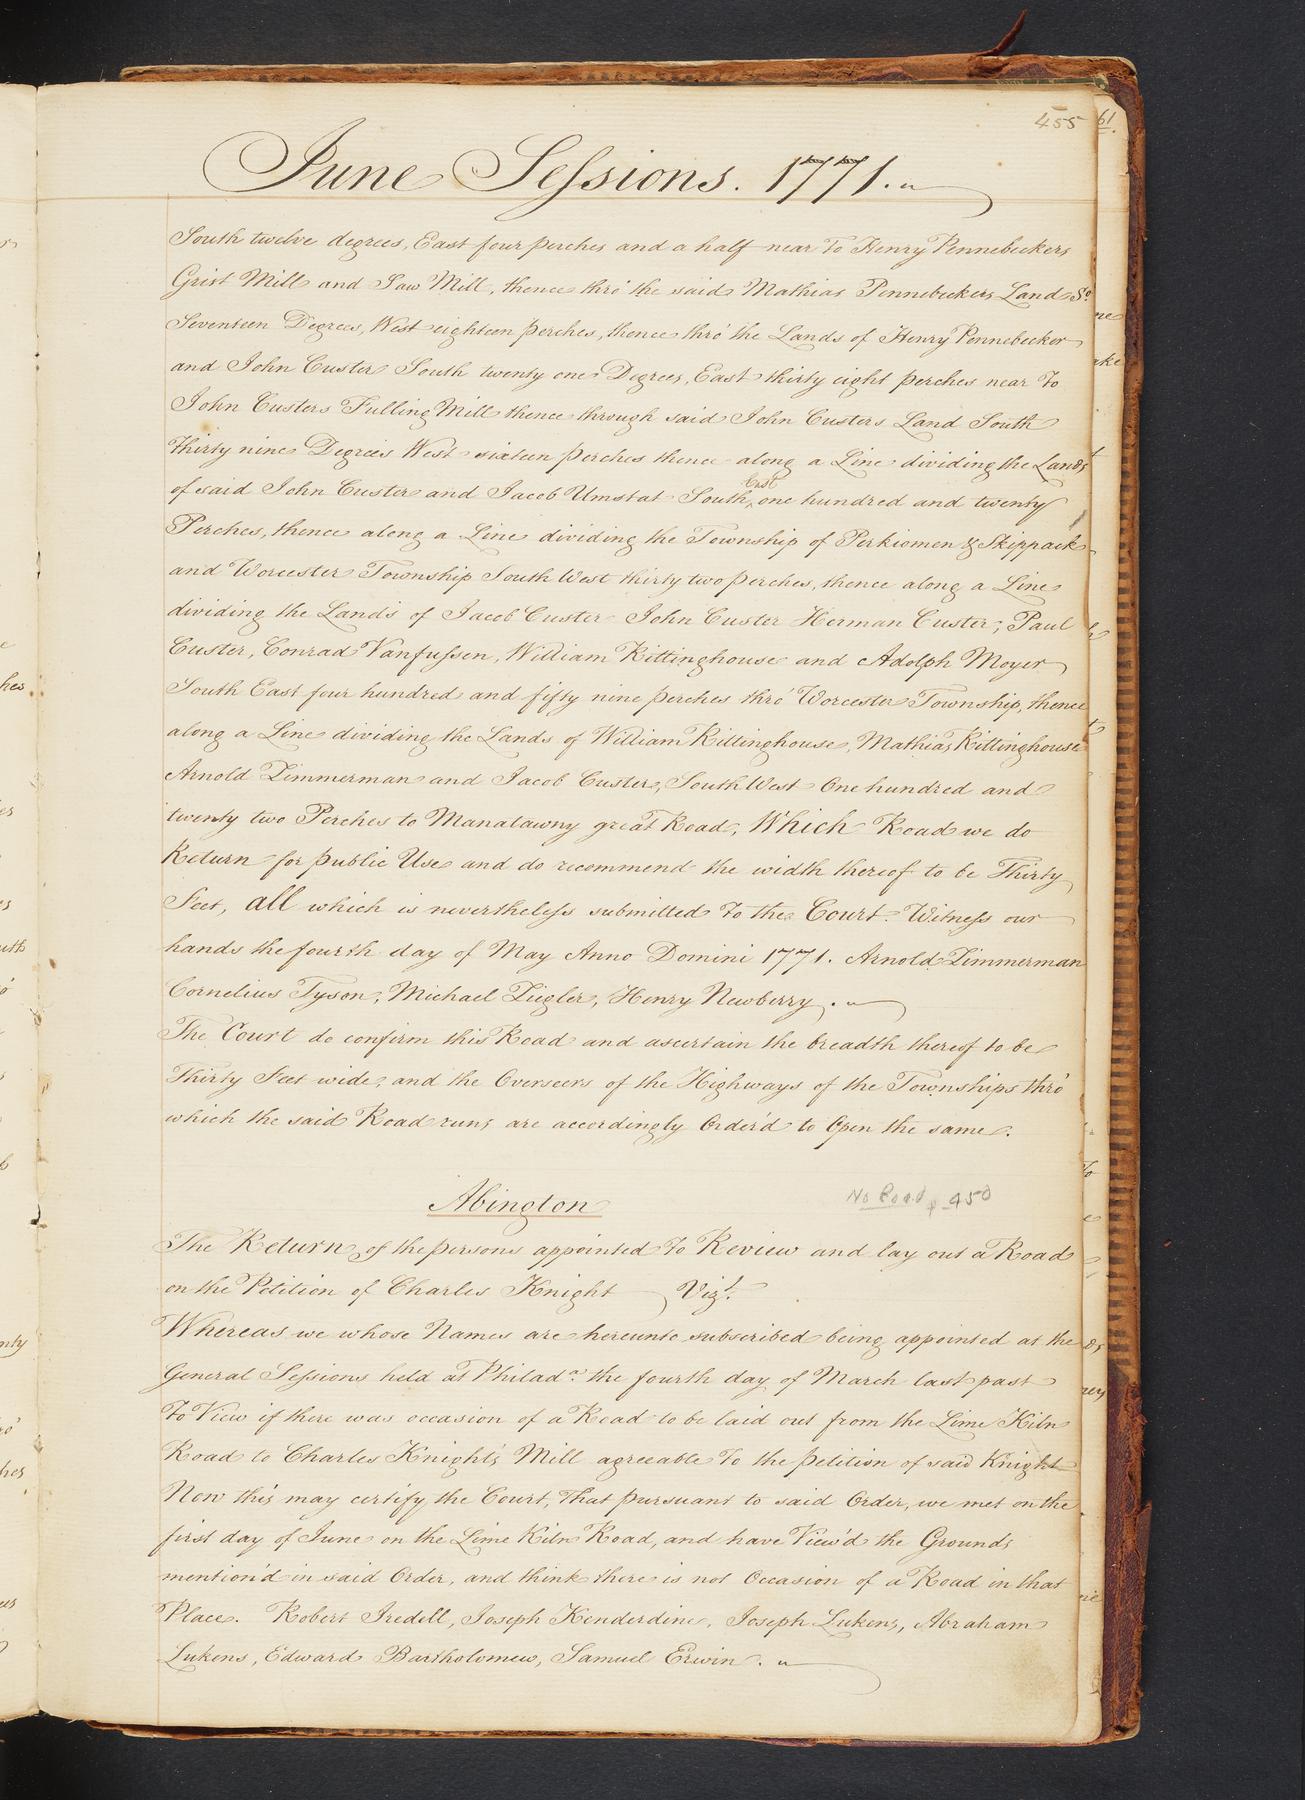 455
61
June Sessions. 1771.
South twelve degrees, East four perches and a half near to Henry Pennebeckers
Grist Mill and Saw Mill, thence thro' the said Mathias Pennebeckers Land So.
Seventeen Degrees, West eighteen perches, thence thro' the Lands of Henry Pennebecker
and John Custer South twenty one Degrees, East thirty eight perches near to
John Custers Fulling Mill thence through said John Custers Land South
thirty nine Degrees West sixteen perches thence along a Line dividing the Lands
of said John Custer and Jacob Umstat South East one hundred and twenty
Perches, thence along a Line dividing the Township of Perkiomen & Skippack
and Worcester Township South West thirty two perches, thence along a Line
dividing the Lands of Jacob Custer John Custer Herman Custer, Paul
Custer, Conrad Vanfussen, William Rittinghouse and Adolph Moyer
South East four hundred and fifty nine perches thro' Worcester Township, thence
along a Line dividing the Lands of William Rittinghouse, Mathias Rittinghouse
Arnold Zimmerman and Jacob Custer, South West One hundred and
twenty two Perches to Manatawny great Road, Which Road we do
Return for public Use and do recommend the width thereof to be Thirty
Feet, all which is nevertheless submitted to the Court. Witness our
hands the fourth day of May Anno Domini 1771. Arnold Zimmerman
Cornelius Tyson, Michael Zigler, Henry Newberry.
The Court do confirm this Road and ascertain the breadth thereof to be
Thirty Feet wide, and the Overseers of the Highways of the Townships thro'
which the said Road runs are accordingly Order'd to Open the same.
Abington
No Road p 450
The Return of the persons appointed to Review and lay out a Road
on the Petition of Charles Knight Vizt.
Whereas we whose Names are hereunto subscribed being appointed at the
General Sessions held at Philada. the fourth day of March last past
to View if there was occasion of a Road to be laid out from the Lime Kiln
Road to Charles Knight's Mill agreeable to the petition of said Knight
Now this may certify the Court, That pursuant to said Order, we met on the
first day of June on the Lime Kiln Road, and have View'd the Grounds
mention'd in said Order, and think there is not Occasion of a Road in that
Place. Robert Iredell, Joseph Kenderdine, Joseph Lukens, Abraham
Lukens, Edward Bartholomew, Samuel Erwin.